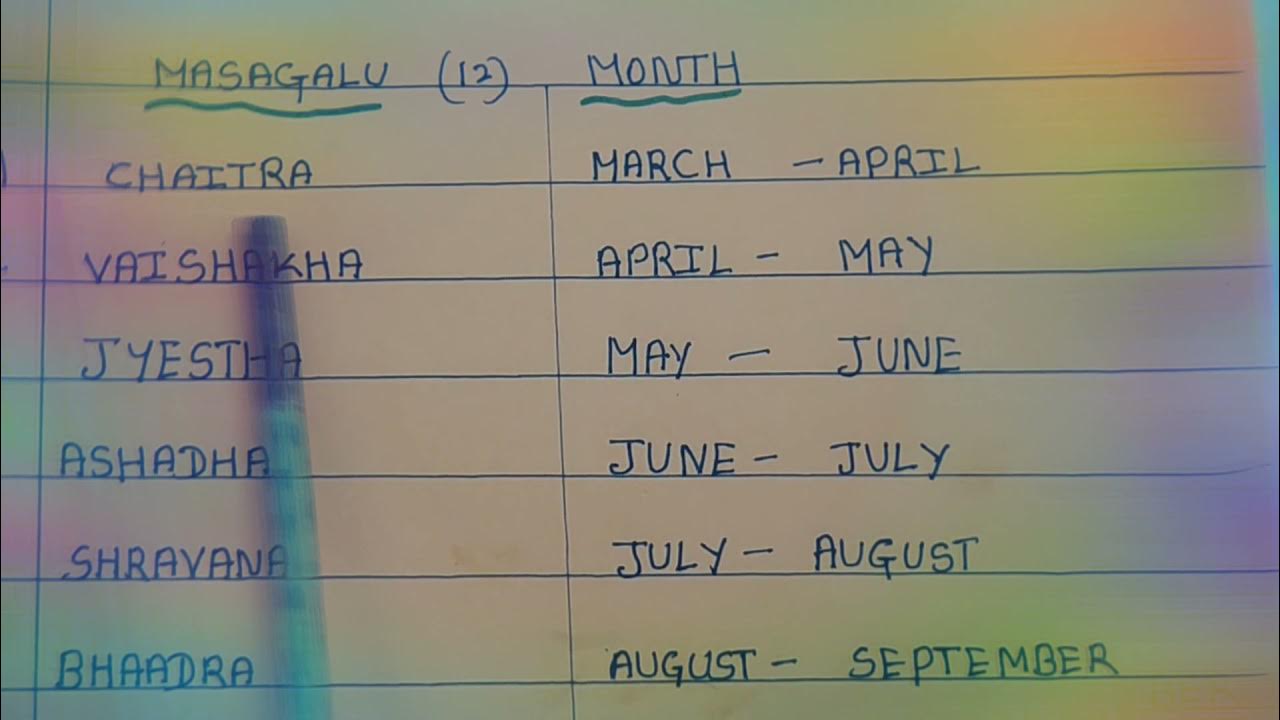 MASAGALU (12) MONTH
CHAITRA MARCH - APRIL
VAISHAKHA APRIL - MAY
JYESTHA MAY - JUNE
ASHADHA JUNE - JULY
SHRAVANA JULY - AUGUST
BHAADRA AUGUST - SEPTEMBER